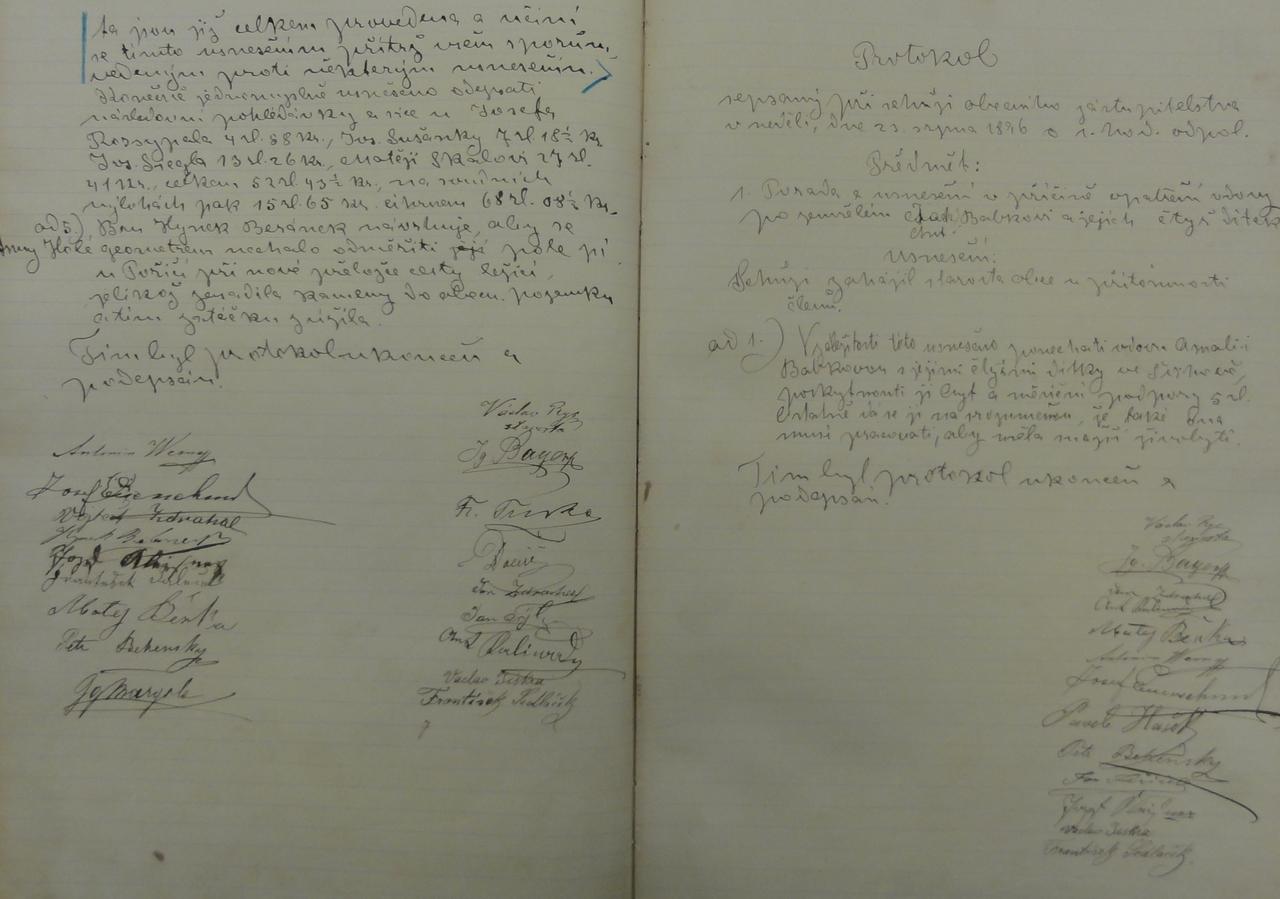 ta jsou již celkem provedena a učiní
se tímto usnesením přítrž všem sporům,
vedeným proti některým usnesením.
Konečně jednomyslně usneseno odepsati
následovní pohledávky a sice u Josefa
Rossypala 4 zl. 58 kr., Jos. Sušánky 7 zl 18½ kr
Jos. Siegla 13 zl. 26 kr., Matěji Skálovi 27 zl.
41 kr., celkem 52 zl 43½ kr., na soudních
výlohách pak 15 zl. 65 kr. úhrnem 68 zl. 08½ kr.
ad 5.) Pan Hynek Beránek navrhuje, aby se
geometrem nechalo odměřiti její pole při
u Poříčí při nové přeložce cesty ležící,
jelikož zasadila kameny do obecn. pozemku
a tím zatáčku zúžila.
Tím byl protokol ukončen a
podepsán.
Václav Ryz
starosta
Antonín Werny
Ig. Bayer
Josef
Vojtěch Zdrahal
Fr. Turka
Hynek
Josef
František
Jan Zdrahal
Matěj Běrka
Jan
Petr Bekensky
Ant.
Ig Margole
Václav Jiskra
František Sedláček
Protokol
sepsaný při schůzi obecního zastupitelstva
v neděli, dne 23. srpna 1896 o 1. hod. odpol.
Předmět:
1. Porada a usnesení v příčině opatření vdovy
po zemřelém Jak. Babkovi a jejich čtyř dítek
chut.
Usnesení:
Schůzi zahájil starosta obce u přítomnosti
členů.
ad 1.) V záležitosti této usneseno ponechati vdovu Amalii
Babkovou s jejími čtyřmi dítky ve
poskytnouti jí byt a měsíční podpory 5 zl.
Ostatně dá se jí na srozuměnou, že také ona
musí pracovati, aby měla snažší živobytí.
Tím byl protokol ukončen a
podepsán.
Václav Ryz
starosta
Ig. Bayer
Jan Zdrahal
Ant.
Matěj Běrka
Antonín Werny
Josef
Pavel Hasík
Petr Bekensky
Josef
Václav Jiskra
František Sedláček